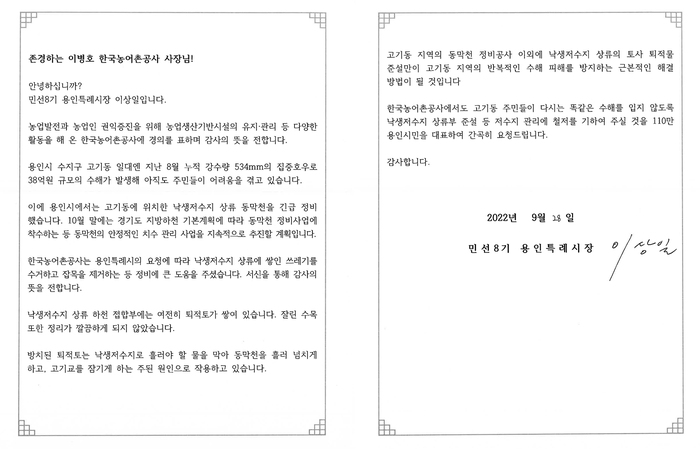 존경하는 이병호 한국농어촌공사 사장님!
안녕하십니까?
민선8기 용인특례시장 이상일입니다.
농업발전과 농업인 권익증진을 위해 농업생산기반시설의 유지·관리 등 다양한
활동을 해 온 한국농어촌공사에 경의를 표하며 감사의 뜻을 전합니다.
용인시 수지구 고기동 일대엔 지난 8월 누적 강수량 534mm의 집중호우로
38억원 규모의 수해가 발생해 아직도 주민들이 어려움을 겪고 있습니다.
이에 용인시에서는 고기동에 위치한 낙생저수지 상류 동막천을 긴급 정비
했습니다. 10월 말에는 경기도 지방하천 기본계획에 따라 동막천 정비사업에
착수하는 등 동막천의 안정적인 치수 관리 사업을 지속적으로 추진할 계획입니다.
한국농어촌공사는 용인특례시의 요청에 따라 낙생저수지 상류에 쌓인 쓰레기를
수거하고 잡목을 제거하는 등 정비에 큰 도움을 주셨습니다. 서신을 통해 감사의
뜻을 전합니다.
낙생저수지 상류 하천 접합부에는 여전히 퇴적토가 쌓여 있습니다. 잘린 수목
또한 정리가 깔끔하게 되지 않았습니다.
방치된 퇴적토는 낙생저수지로 흘러야 할 물을 막아 동막천을 흘러 넘치게
하고, 고기교를 잠기게 하는 주된 원인으로 작용하고 있습니다.
고기동 지역의 동막천 정비공사 이외에 낙생저수지 상류의 토사 퇴적물
준설만이 고기동 지역의 반복적인 수해 피해를 방지하는 근본적인 해결
방법이 될 것입니다
한국농어촌공사에서도 고기동 주민들이 다시는 똑같은 수해를 입지 않도록
낙생저수지 상류부 준설 등 저수지 관리에 철저를 기하여 주실 것을 110만
용인시민을 대표하여 간곡히 요청드립니다.
감사합니다.
2022년 9월 28일
민선8기 용인특례시장 이상일